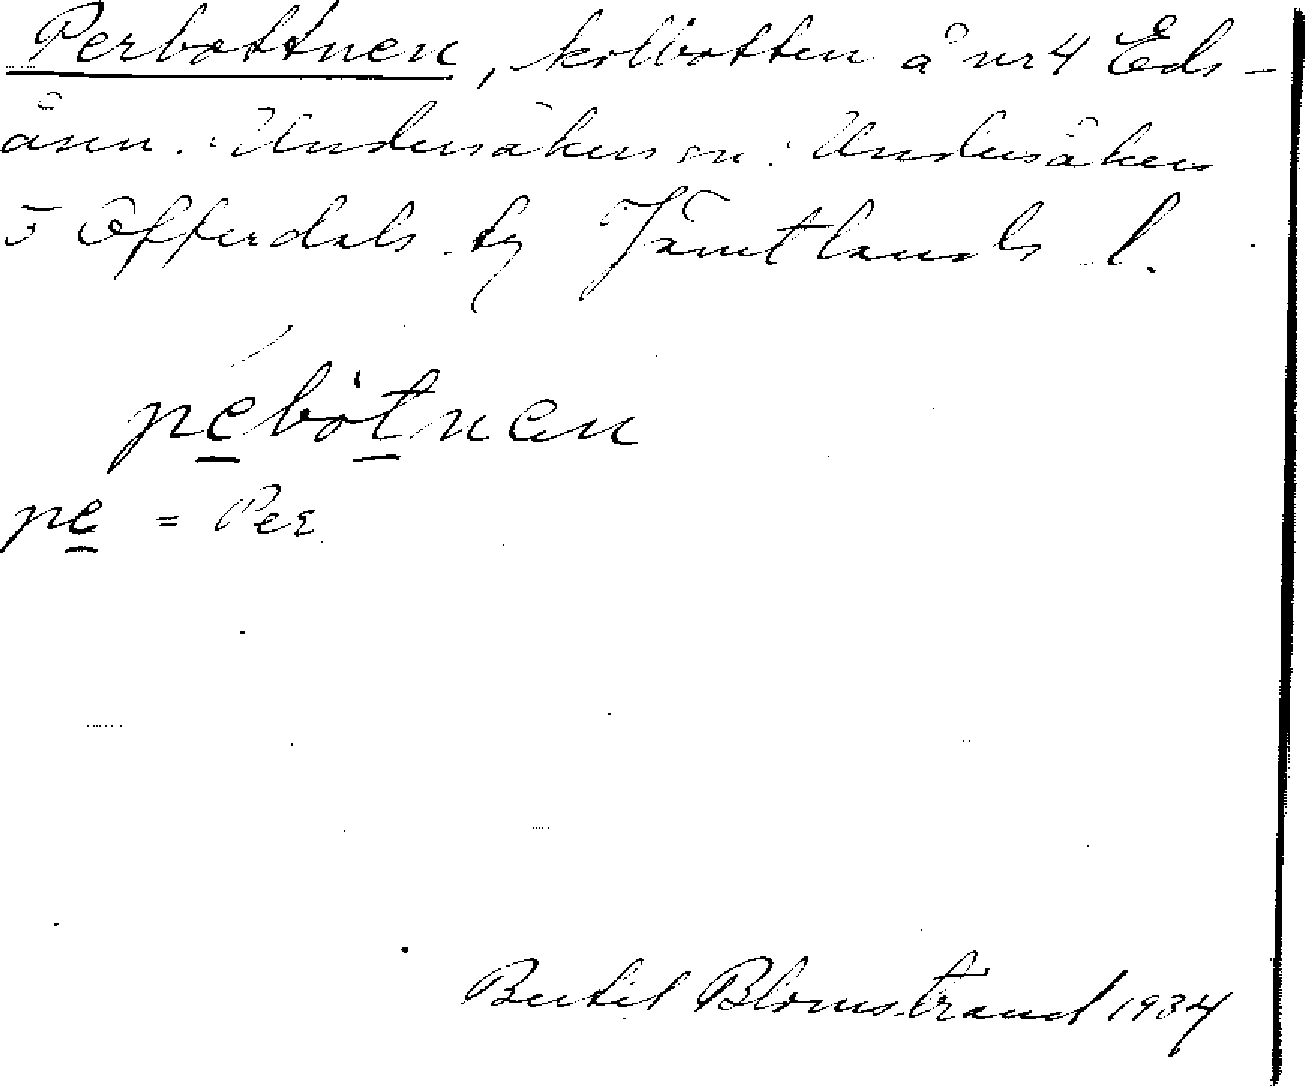 Perbottnen, kolbotten å nr 4 Eds-
åsen. Undersåkers sn. Undersåkers
o Offerdals tg Jämtlands l.
pebòtnen
pe = Per
Bertil Blomstrand 1934